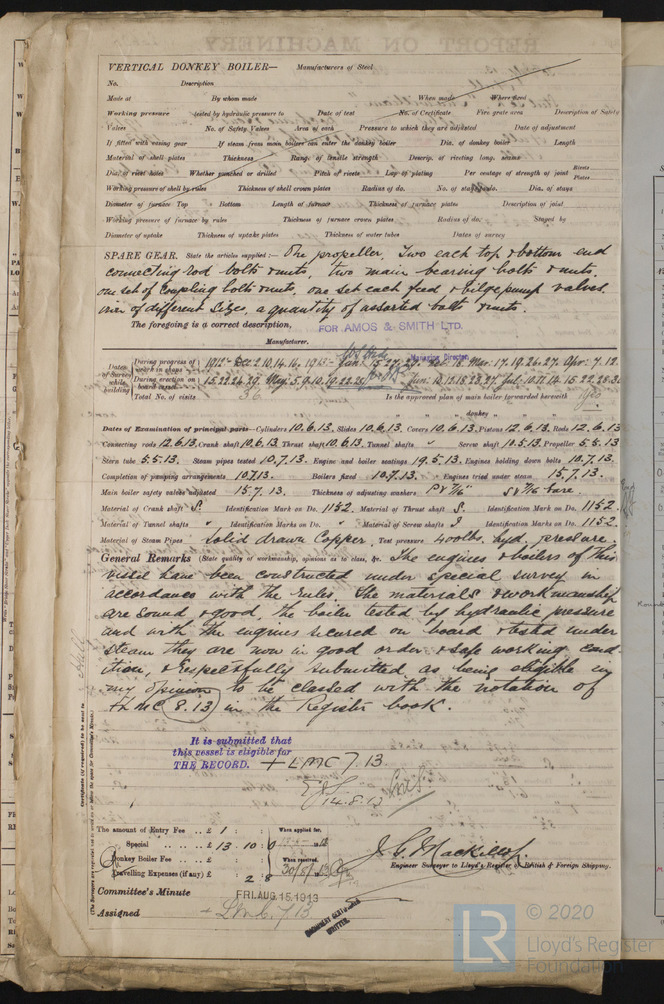 VERTICAL DONKEY BOILER— Manufacturers of Steel
No. Description
Made at By whom made When made Where fixed
Working pressure tested by hydraulic pressure to Date of test No. of Certificate Fire grate area Description of Safety
Valves No. of Safety Valves Area of each Pressure to which they are adjusted Date of adjustment
If fitted with easing gear If steam from main boilers can enter the donkey boiler Dia. of donkey boiler Length
Material of shell plates Thickness Range of tensile strength Descrip. of riveting long. seams
Dia. of rivet holes Whether punched or drilled Pitch of rivets Lap of plating Per centage of strength of joint Rivets Plates
Working pressure of shell by rules Thickness of shell crown plates Radius of do. No. of stays to do. Dia. of stays
Diameter of furnace Top Bottom Length of furnace Thickness of furnace plates Description of joint
Working pressure of furnace by rules Thickness of furnace crown plates Radius of do. Stayed by
Diameter of uptake Thickness of uptake plates Thickness of water tubes Dates of survey
SPARE GEAR. State the articles supplied:— One propeller, Two each top & bottom end
connecting rod bolts & nuts, two main bearing bolts & nuts,
one set of coupling bolts & nuts, one set each feed & bilge pump valves,
iron of different size, a quantity of assorted bolts & nuts.
The foregoing is a correct description,
FOR AMOS & SMITH LTD.
Manufacturer.
Managing Director
Dates of Survey while building
During progress of work in shops 1912 - Dec. 2. 10. 14. 16. 1913 - Jan. 15. 27. 29. Feb. 18. Mar. 17. 19. 26. 27. Apr. 7. 12.
During erection on board vessel 15. 22. 24. 29. May. 5. 9. 10. 19. 22. 25. Jun. 10. 12. 18. 23. 27. Jul. 10. 11. 14. 15. 22. 28. 30
Total No. of visits 36 Is the approved plan of main boiler forwarded herewith Yes
" " " donkey "
Dates of Examination of principal parts—Cylinders 10.6.13. Slides 10.6.13. Covers 10.6.13. Pistons 12.6.13. Rods 12.6.13
Connecting rods 12.6.13. Crank shaft 10.6.13. Thrust shaft 10.6.13. Tunnel shafts " Screw shaft 10.5.13. Propeller 5.5.13
Stern tube 5.5.13. Steam pipes tested 10.7.13. Engine and boiler seatings 19.5.13. Engines holding down bolts 10.7.13.
Completion of pumping arrangements 10.7.13. Boilers fixed 10.7.13. Engines tried under steam 15.7.13.
Main boiler safety valves adjusted 15.7.13. Thickness of adjusting washers P 7/16 S 7/16 bare.
Material of Crank shaft S. Identification Mark on Do. 1152. Material of Thrust shaft S. Identification Mark on Do. 1152
Material of Tunnel shafts " Identification Marks on Do. " Material of Screw shafts I Identification Marks on Do. 1152.
Material of Steam Pipes Solid drawn Copper. Test pressure 400lbs. hyd. pressure.
General Remarks (State quality of workmanship, opinions as to class, &c. The engines & boilers of this
vessel have been constructed under special survey in
accordance with the rules. The materials & workmanship
are sound & good, the boiler tested by hydraulic pressure
and with the engines secured on board & tested under
steam they are now in good order & safe working cond-
ition, & respectfully submitted as being eligible in
my opinion to be classed with the notation of
+ LMC 8.13 in the Register book.
It is submitted that
this vessel is eligible for
THE RECORD. + LMC 7.13
14.8.13
The amount of Entry Fee .. £ 1 : :
When applied for,
Special .. .. .. £ 13 : 10 : 0
Donkey Boiler Fee .. .. £ : :
When received,
Travelling Expenses (if any) £ : 2 : 8 30/8/13
J. G. Mackillop.
Engineer Surveyor to Lloyd's Register of British & Foreign Shipping.
Committee's Minute FRI. AUG 15. 1913
Assigned + LMC. 7.13
MACHINERY CERTIFICATE WRITTEN.
Hull
Certificate (if required) to be sent to
© 2020
Lloyd's Register
Foundation